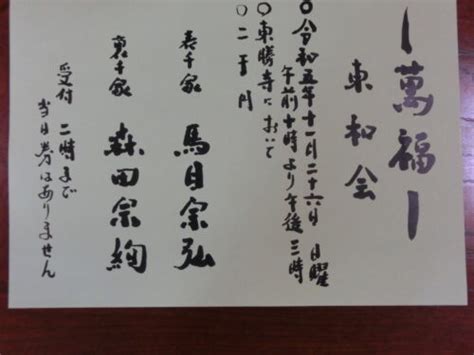 ー萬福ー
東和会
〇令和五年十一月二十六日 日曜
午前十時より午後三時
〇東勝寺において
〇二千円
表千家 馬目宗弘
裏千家 森田宗絢
受付 二時まで
当日券はありません